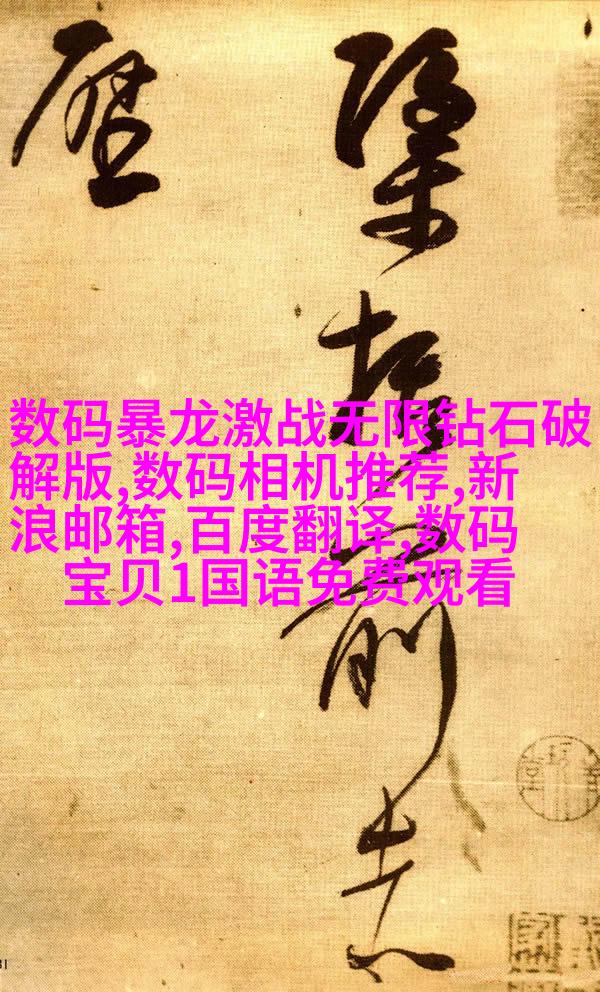 数码暴龙激战无限钻石破
解版,数码相机推荐,新
浪邮箱,百度翻译,数码
宝贝1国语免费观看
前志
歷